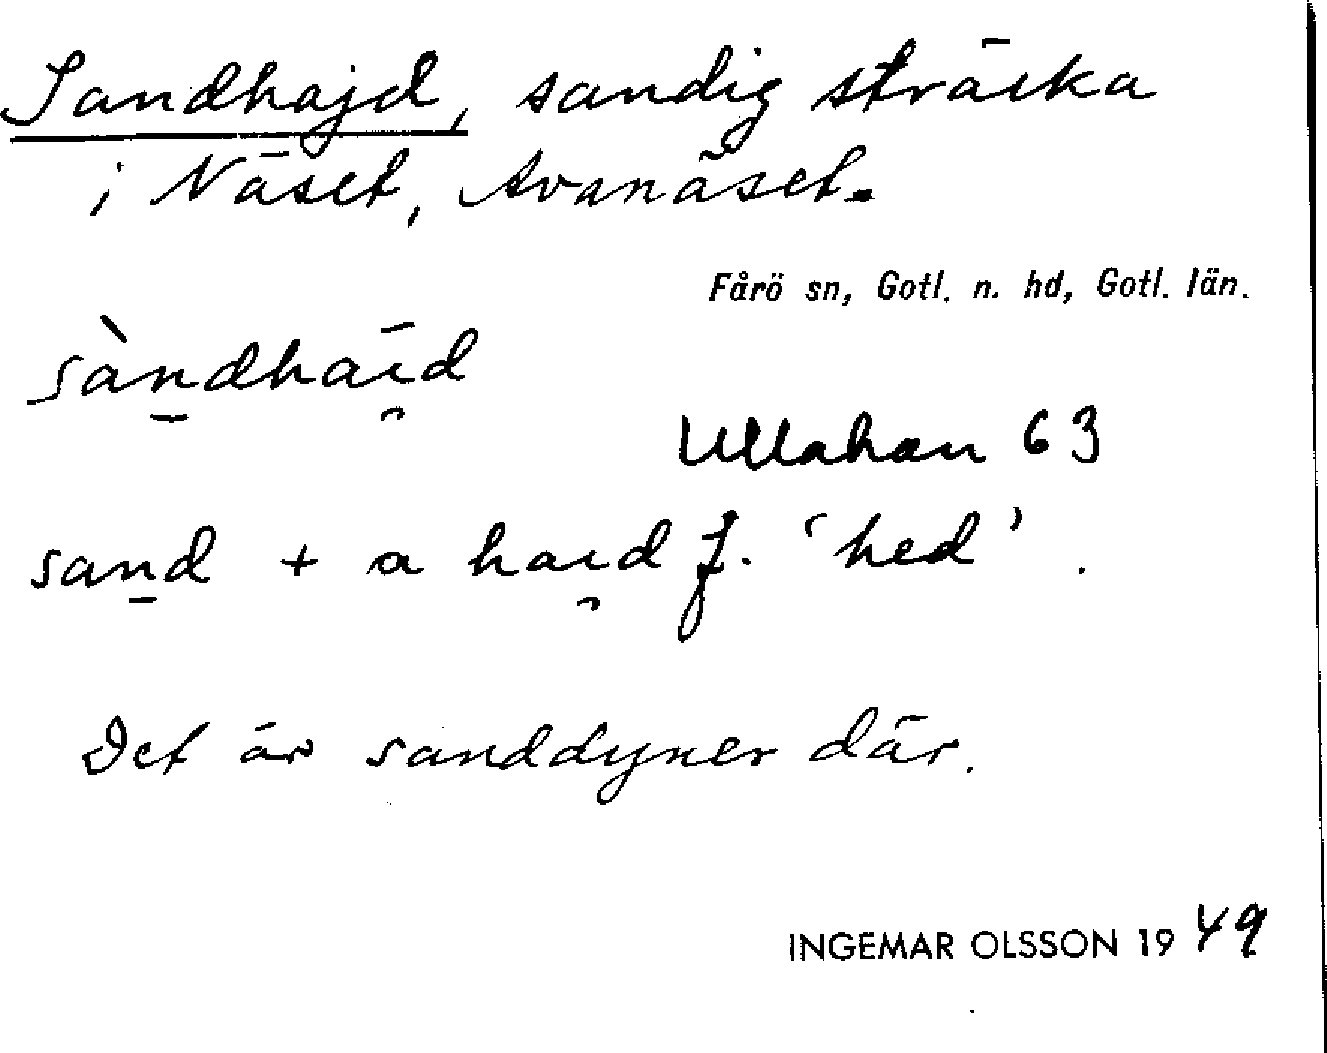 Sandhajd, sandig sträcka
i Näset, Avanäset.
Fårö sn, Gotl. n. hd, Gotl. län.
sàn̠dhāi̯d
Ullahau 63
san̠d + a hai̯d f. 'hed'.
Det är sanddyner där.
INGEMAR OLSSON 1949